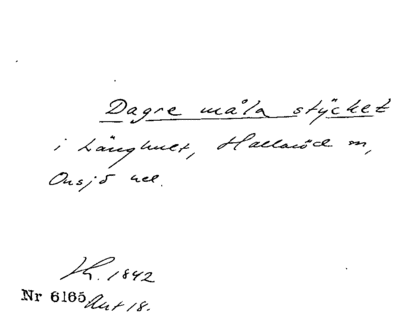 Dagre måla stÿcket
i Länghult, Hallaröd sn,
Onsjö hd.
Hr. 1842
Nr 6165 Akt 18.